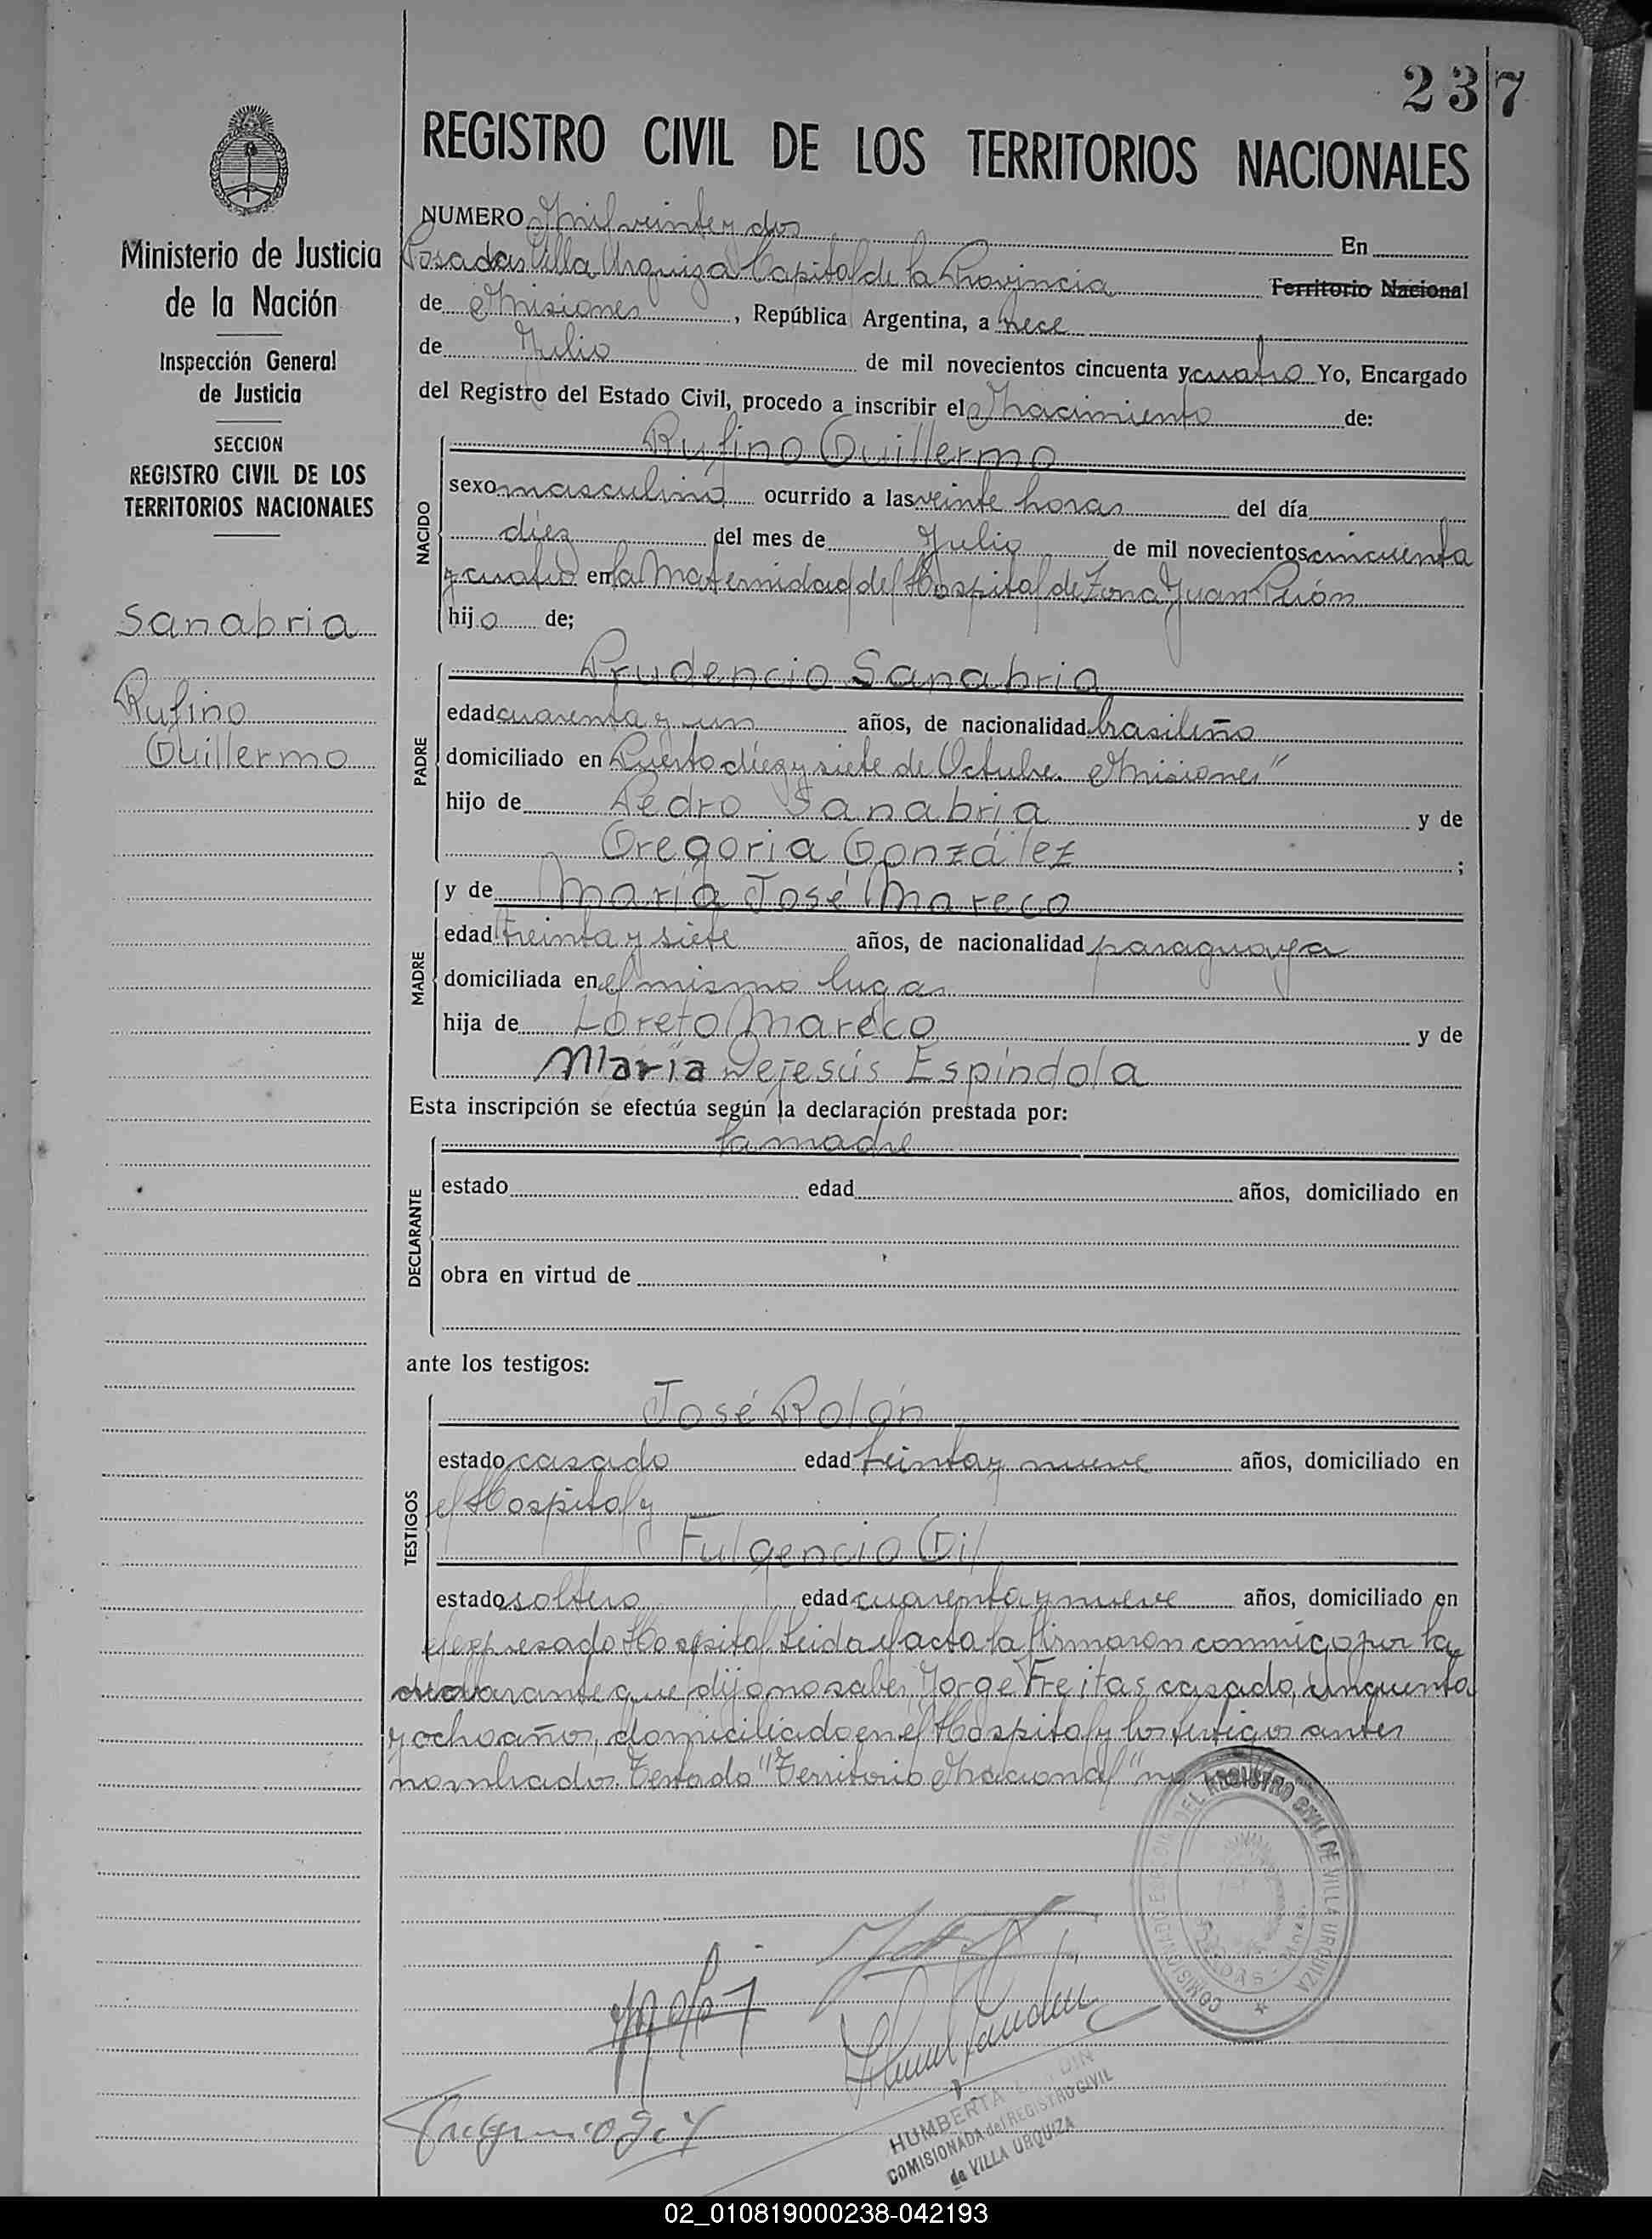 237
REGISTRO CIVIL DE LOS TERRITORIOS NACIONALES
Ministerio de Justicia
de la Nación
Inspección General
de Justicia
SECCION
REGISTRO CIVIL DE LOS
TERRITORIOS NACIONALES
Sanabria
Rufino
Guillermo
NUMERO Mil veinte y dos En
Posadas Villa Urquiza Capital de la Provincia Territorio Nacional
de Misiones, República Argentina, a trece
de Julio de mil novecientos cincuenta y cuatro Yo, Encargado
del Registro del Estado Civil, procedo a inscribir el Nacimiento de:
NACIDO
Rufino Guillermo
sexo masculino ocurrido a las veinte horas del día
diez del mes de Julio de mil novecientos cincuenta
y cuatro en la Maternidad del Hospital de Zona Juan Perón
hijo de;
PADRE
Prudencio Sanabria
edad cuarenta y un años, de nacionalidad brasileño
domiciliado en Puerto diez y siete de Octubre. Misiones"
hijo de Pedro Sanabria y de
Gregoria González ;
MADRE
y de María José Mareco
edad treinta y siete años, de nacionalidad paraguaya
domiciliada en el mismo lugar
hija de Loreto Mareco y de
María Dejesús Espíndola
Esta inscripción se efectúa según la declaración prestada por:
DECLARANTE
la madre
estado edad años, domiciliado en
obra en virtud de
ante los testigos:
TESTIGOS
José Rolón
estado casado edad treinta y nueve años, domiciliado en
el Hospital y
Fulgencio Gil
estado soltero edad cuarenta y nueve años, domiciliado en
el expresado Hospital Leida el acta la firmaron conmigo por la
declarante que dijo no saber, Jorge Freitas casado, cinquenta
y ocho años, domiciliado en el Hospital y los testigos antes
nombrados. Testado "Territorio Nacional"
DEL REGISTRO CIVIL DE VILLA URQUIZA
POSADAS
HUMBERTA
COMISIONADA del REGISTRO CIVIL
de VILLA URQUIZA
02_010819000238-042193